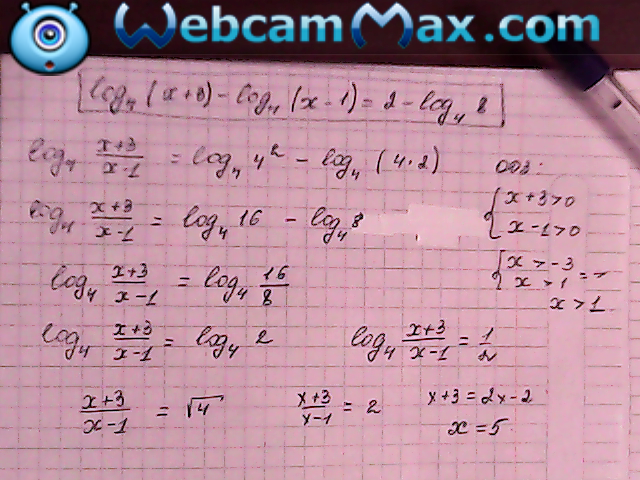 WebcamMax.com
log₄ (x+3) - log₄ (x-1) = 2 - log₄ 8
log₄ (x+3)/(x-1) = log₄ 4² - log₄ (4·2)
ОДЗ:
log₄ (x+3)/(x-1) = log₄ 16 - log₄ 8
{ x+3>0
x-1>0
{ x > -3
x > 1 =>
x > 1
log₄ (x+3)/(x-1) = log₄ 16/8
log₄ (x+3)/(x-1) = log₄ 2
log₄ (x+3)/(x-1) = 1/2
(x+3)/(x-1) = √4
(x+3)/(x-1) = 2
x+3 = 2x-2
x = 5